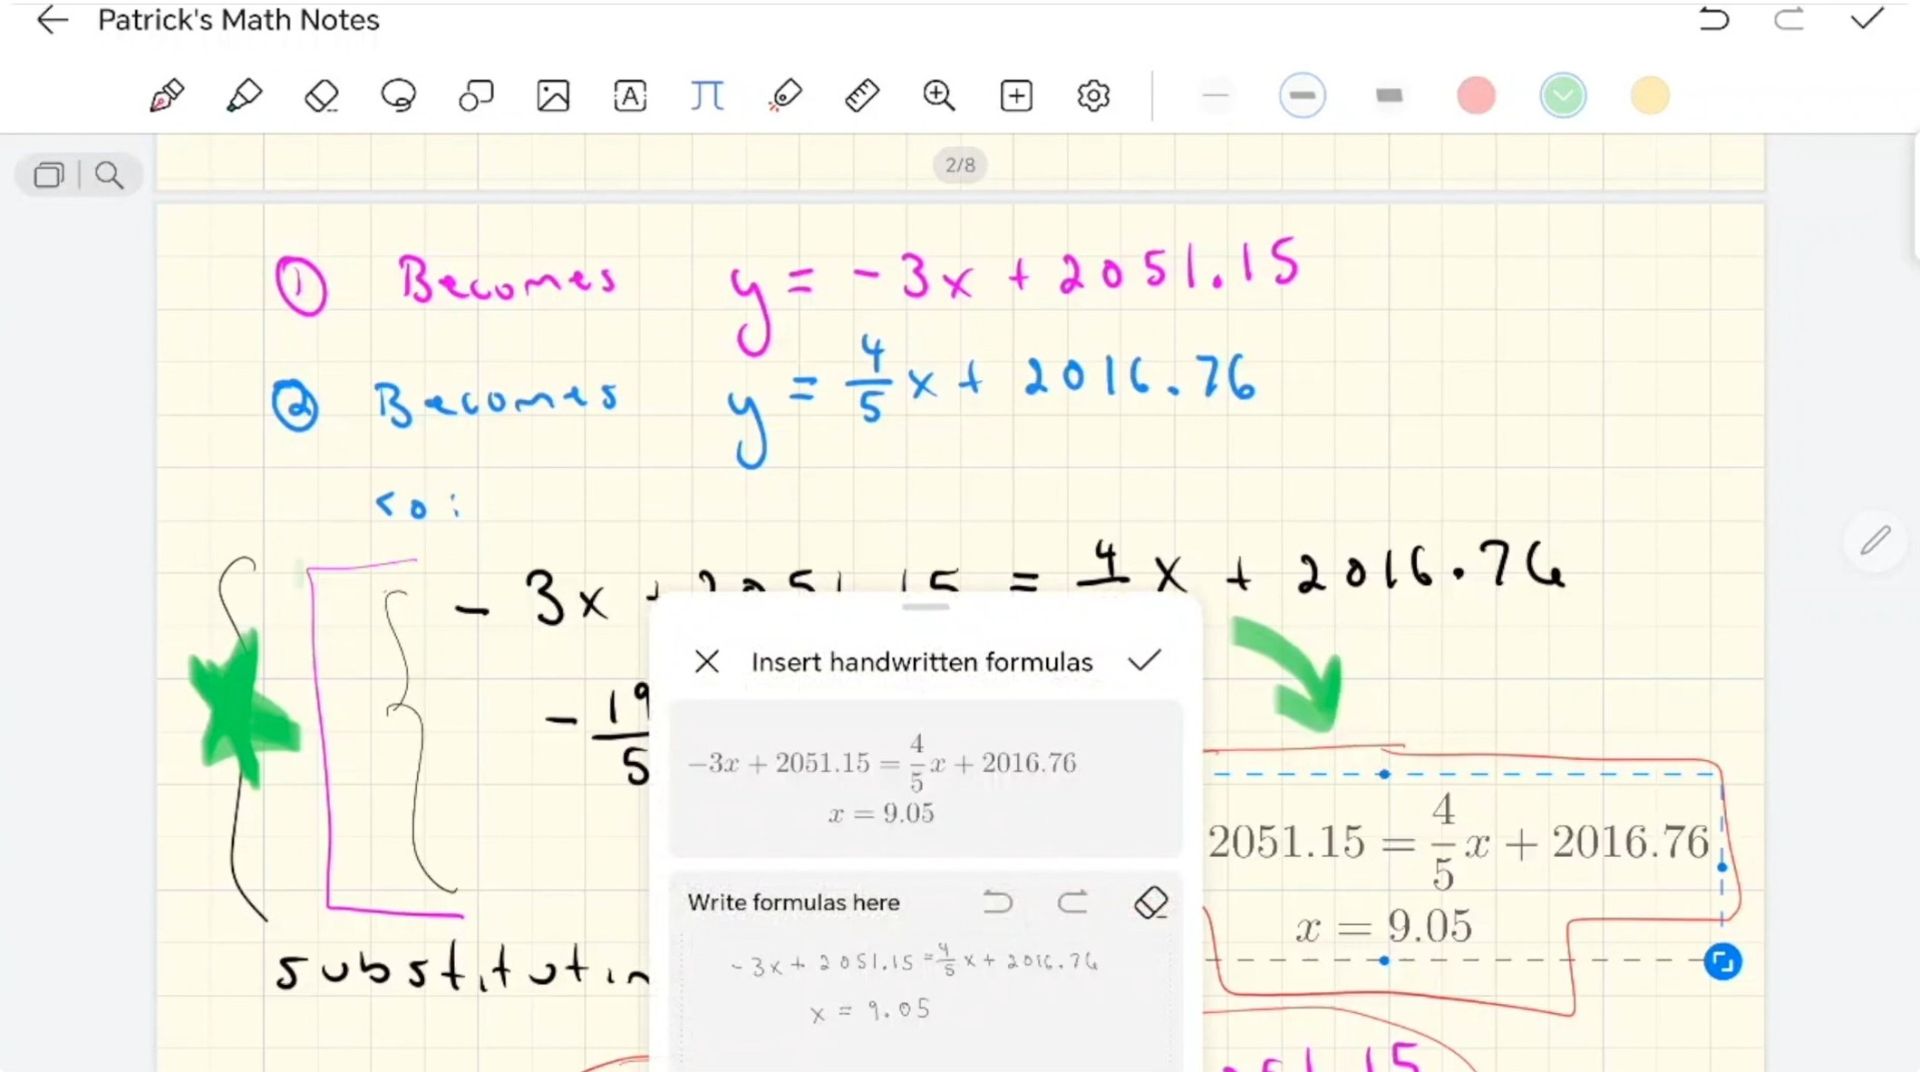 Patrick's Math Notes
2/8
① Becomes y = -3x + 2051.15
② Becomes y = 4/5 x + 2016.76
<o:
-3x + 2051.15 = 4 x + 2016.76
- 19/5
Insert handwritten formulas
-3x + 2051.15 = 4/5 x + 2016.76
x = 9.05
Write formulas here
-3x + 2051.15 = 4/5 x + 2016.76
x = 9.05
2051.15 = 4/5 x + 2016.76
x = 9.05
substitutin